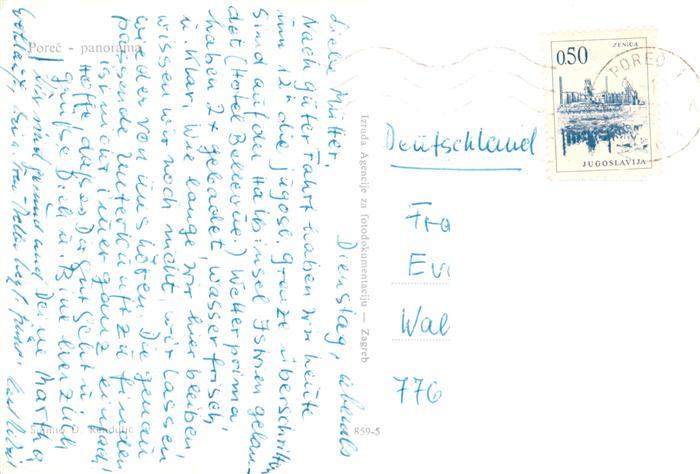 Poreč - panorama
Dienstag, abends
Liebe Mutter,
Nach guter Fahrt haben wir heute
um 12 h die jugosl. Grenze überschritten
sind auf der Halbinsel Istrien gelan-
det (Hotel Bellevue.) Wetter prima
haben 2 x gebadet, Wasser frisch,
u. klar, wie lange wir hier bleiben
wissen wir noch nicht, wir lassen
wieder von uns hören. Die genau
passende Unterkunft zu finden
ist nicht immer ganz einfach,
Hoffe daß es Dir gut geht u.
grüße Dich u. Bine herzlich
Wir sind gesund und Deine Martha
Snimio D.
859-5
Izrada Agencije za fotodokumentaciju — Zagreb
0.50
ZENICA
JUGOSLAVIJA
POREČ
Deutschland
Fra
Evi
Wal
776